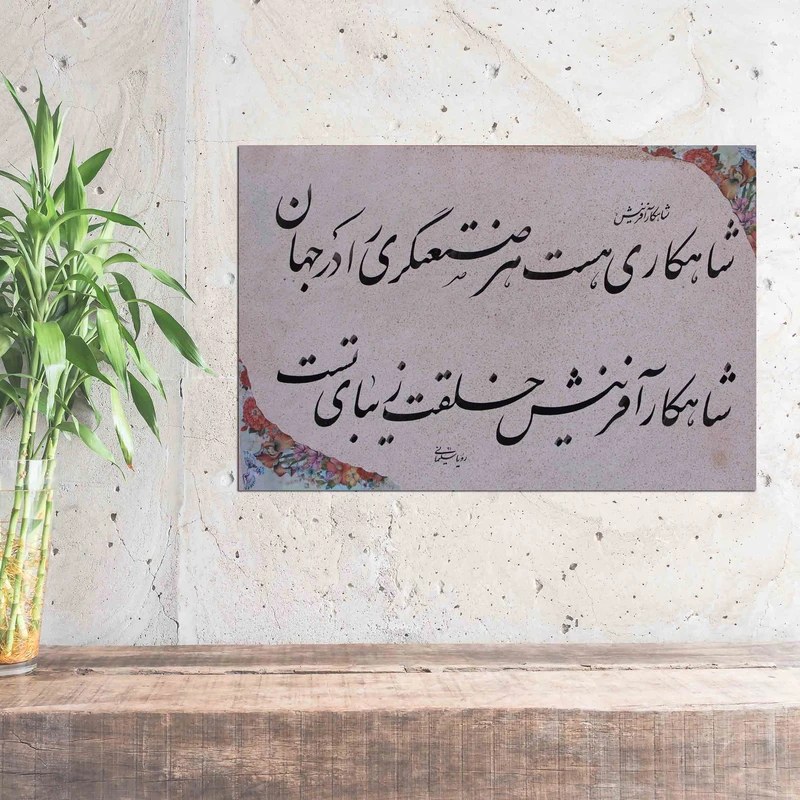 شاهکارآفرینش
شاهکاری هست هر صنعتگری را در جهان
شاهکار آفرینش خلقت زیبای تست